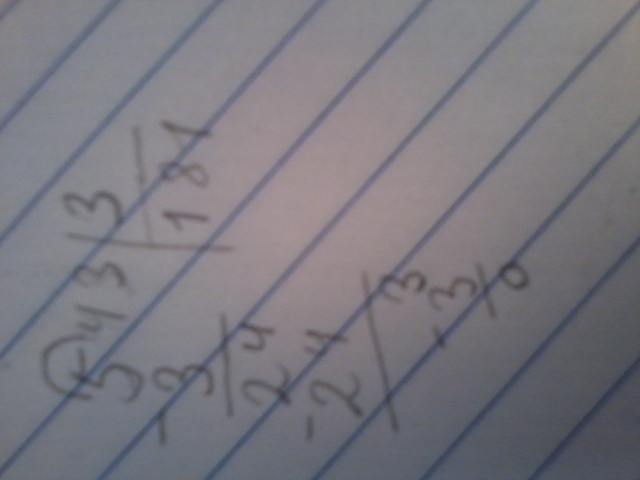 543 3
- 3 181
24
- 24
3
- 3
0